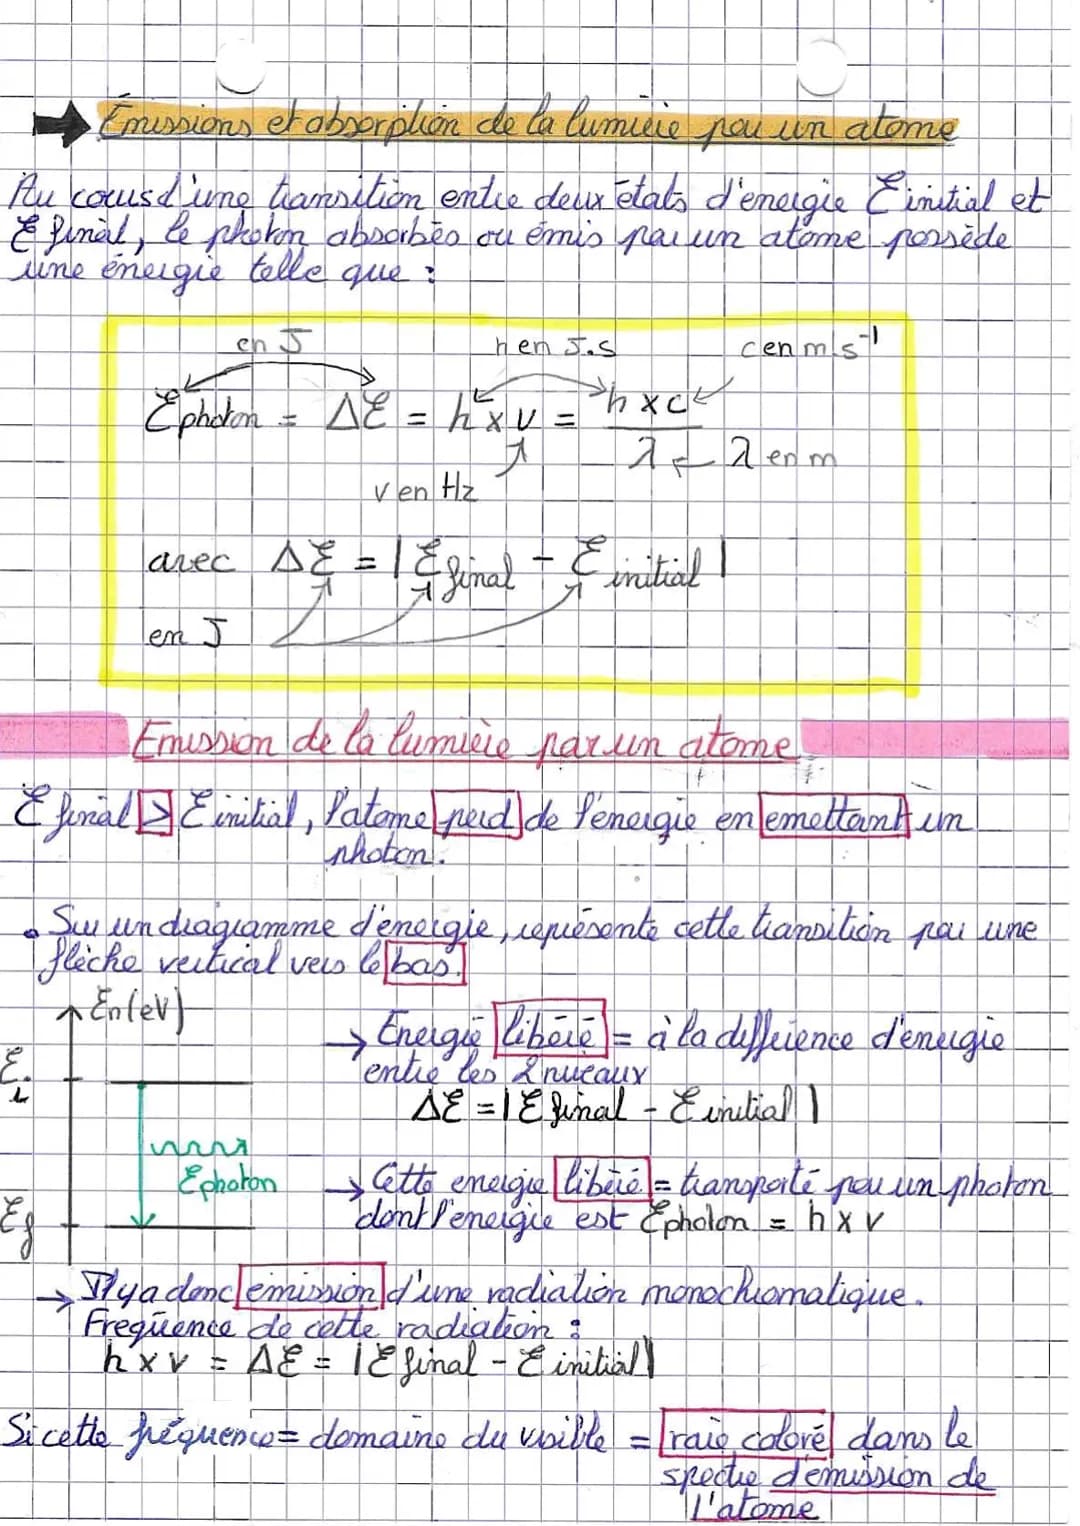 Emissions et absorption de la lumière par un atome
Au cours d'une transition entre deux états d'énergie Ɛ initial et
Ɛ final, le photon absorbés ou émis par un atome possède
une énergie telle que :
en J
h en J.s
c en m/s⁻¹
Ɛphoton = ΔƐ = h x ν = h x c / λ
λ en m
ν en Hz
avec ΔƐ = | Ɛ final - Ɛ initial |
en J
Emission de la lumière par un atome
Ɛ final > Ɛ initial, l'atome perd de l'énergie en emettant un
photon.
• Sur un diagramme d'énergie, représente cette transition par une
flèche vertical vers le bas.
Ɛn (eV)
Ɛi
→ Energie libéré = à la différence d'énergie
entre les 2 niveaux
ΔƐ = | Ɛ final - Ɛ initial |
Ɛphoton
→ Cette energie libéré = transporté par un photon
dont l'energie est Ɛphoton = h x ν
Ɛf
→ Il y a donc émission d'une radiation monochromatique.
Freqüence de cette radiation :
h x ν = ΔƐ = | Ɛ final - Ɛ initial |
Si cette fréquence = domaine du visible = raie coloré dans le
spectre d'émission de
l'atome